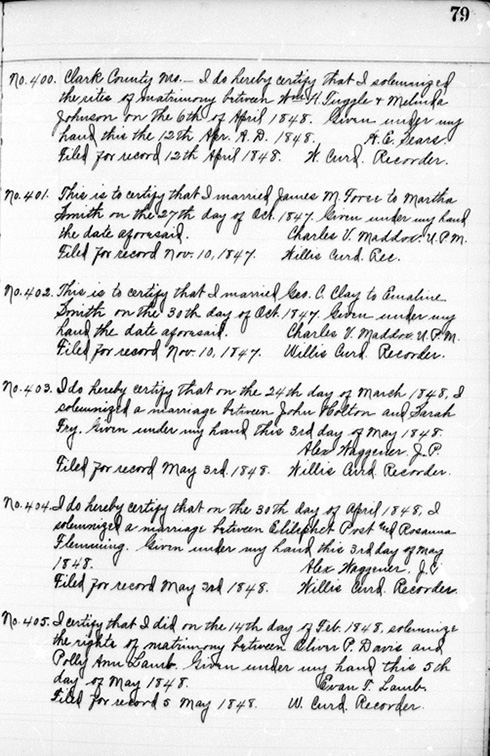 79
No. 400. Clark County Mo. — I do hereby certify that I solemnized
the rites of matrimony between Wm. H. Tuggle & Melinda
Johnson on the 6th of April 1848. Given under my
hand this the 12th Apr. A.D. 1848. H. E. Sears.
Filed for record 12th April 1848. W. Curd. Recorder.
No. 401. This is to certify that I married James M. to Martha
Smith on the 27th day of Oct. 1847. Given under my hand
the date aforesaid. Charles V. Maddox. U.P.M.
Filed for record Nov. 10, 1847. Willis Curd Rec.
No. 402. This is to certify that I married Geo. C. Clay to Emaline
Smith on the 30th day of Oct. 1847. Given under my
hand the date aforesaid. Charles V. Maddox, U.P.M.
Filed for record Nov. 10, 1847. Willis Curd. Recorder.
No. 403. I do hereby certify that on the 24th day of March 1848, I
solemnized a marriage between John Holton and Sarah
Fry. Given under my hand this 3rd day of May 1848.
Alex Waggener. J.P.
Filed for record May 3rd. 1848. Willis Curd. Recorder.
No. 404. I do hereby certify that on the 30th day of April 1848, I
solemnized a marriage between Eliliphet Post and Rosanna
Flemming. Given under my hand this 3rd day of May
1848. Alex Waggener. J.P.
Filed for record May 3rd 1848. Willis Curd. Recorder.
No. 405. I certify that I did on the 14th day of Feb. 1848, solemnize
the rights of matrimony between Oliver P. Davis and
Polly Ann Lamb. Given under my hand this 5th
day of May 1848. Evan T. Lamb.
Filed for record 5 May 1848. W. Curd. Recorder.